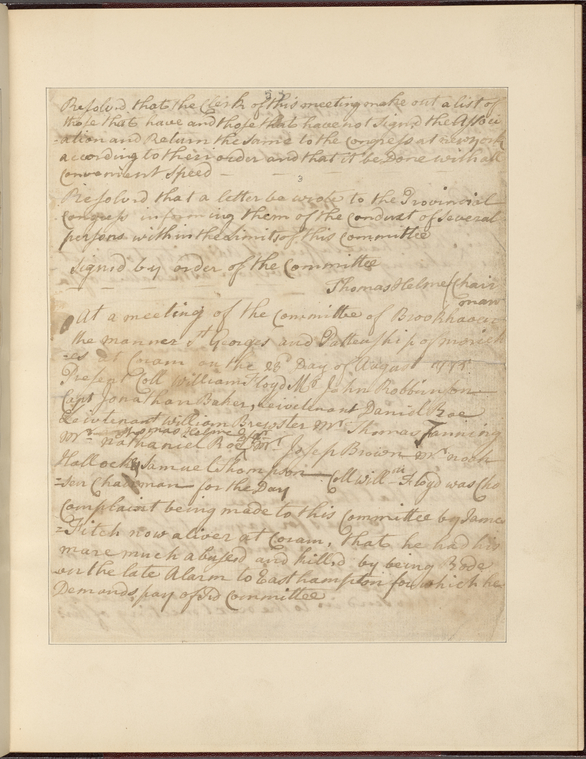 Resolvd that the Clerk of this meeting make out a list of
those that have and those that have not Signd the Associ
=ation and Return the Same to the Congress at newyork
according to their order and that it be Done with all
Convenient Speed
3
Resolvd that a letter be wrote to the Provincial
Congress informing them of the Conduct of Several
persons within the Limits of this Committee
Signd by order of the Committee
Thomas Helme Chair
=man
At a meeting of the Committee of Brookhaven
the manner St Georges and Pattentship of morich
=es at Coram on the Day of August
Present Coll William Floyd Mr John Robbinson
Capt Jonathan Baker, Leivetenant Daniel Roe
Leivetenant William Brewster Mr Thomas Fanning
Thomas Helme
Mr Nathaniel Roe Mr Joseph Brown Mr noah
Hallock Samuel Thompson Coll Willm Floyd was Cho
=sen Chairman for the Day
Complaint being made to this Committee by James
=Fitch now a liver at Coram, that he had his
mare much abused and killd by being Rode
on the late Alarm to Easthampton for which he
Demands pay of sd Committee.